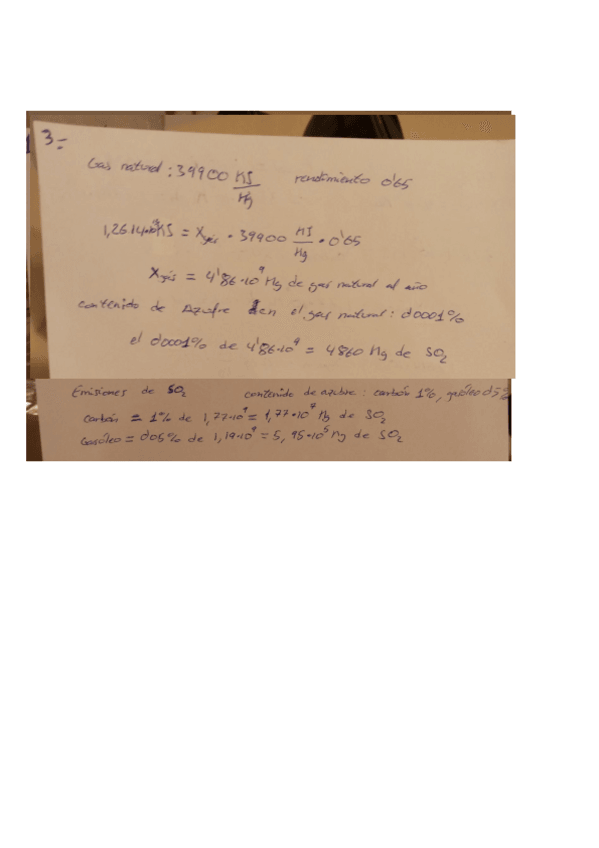 3=
Gas natural: 39900 KJ/Kg rendimiento 0'65
= Xgas · 39900 KJ/Kg · 0'65
Xgas = 4'86·10⁹ Kg de gas natural al año
contenido de Azufre en el gas natural: 0'0001%
el 0'0001% de 4'86·10⁹ = 4860 Kg de SO₂
Emisiones de SO₂ contenido de azufre: carbón 1%, gasóleo
Carbón = 1% de 1,77·10⁹ = 1,77·10⁷ Kg de SO₂
Gasóleo = 0'05% de 1,19·10⁹ = 5,95·10⁵ Kg de SO₂